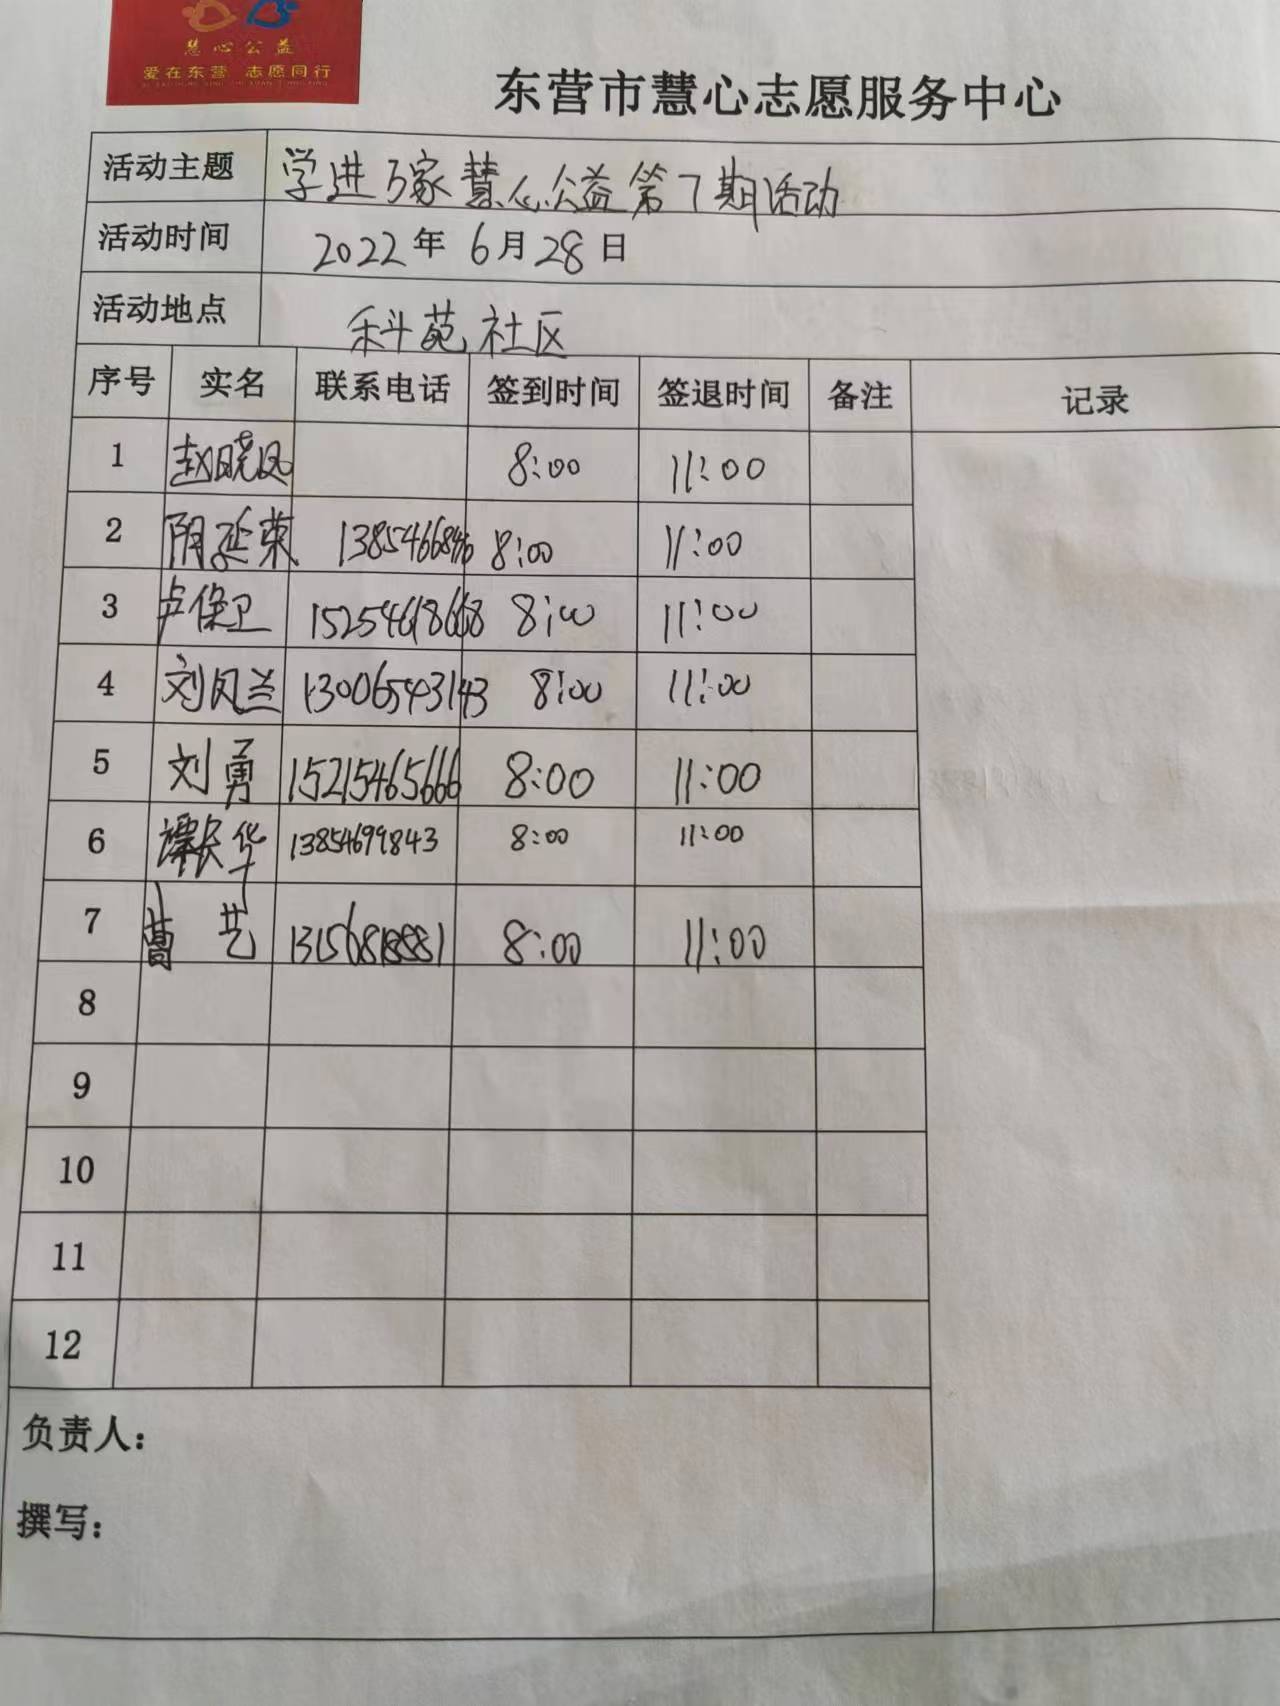 慧心公益
爱在东营 志愿同行
东营市慧心志愿服务中心
活动主题 学进万家慧心公益第7期活动
活动时间 2022年6月28日
活动地点 科苑社区
序号 实名 联系电话 签到时间 签退时间 备注 记录
1 赵晓凤 8:00 11:00
2 阴延荣 8:00 11:00
3 卢保卫 15254618668 8:00 11:00
4 刘凤兰 13006543143 8:00 11:00
5 刘勇 15215465666 8:00 11:00
6 谭长华 13854699843 8:00 11:00
7 曹艺 8:00 11:00
8
9
10
11
12
负责人：
撰写：